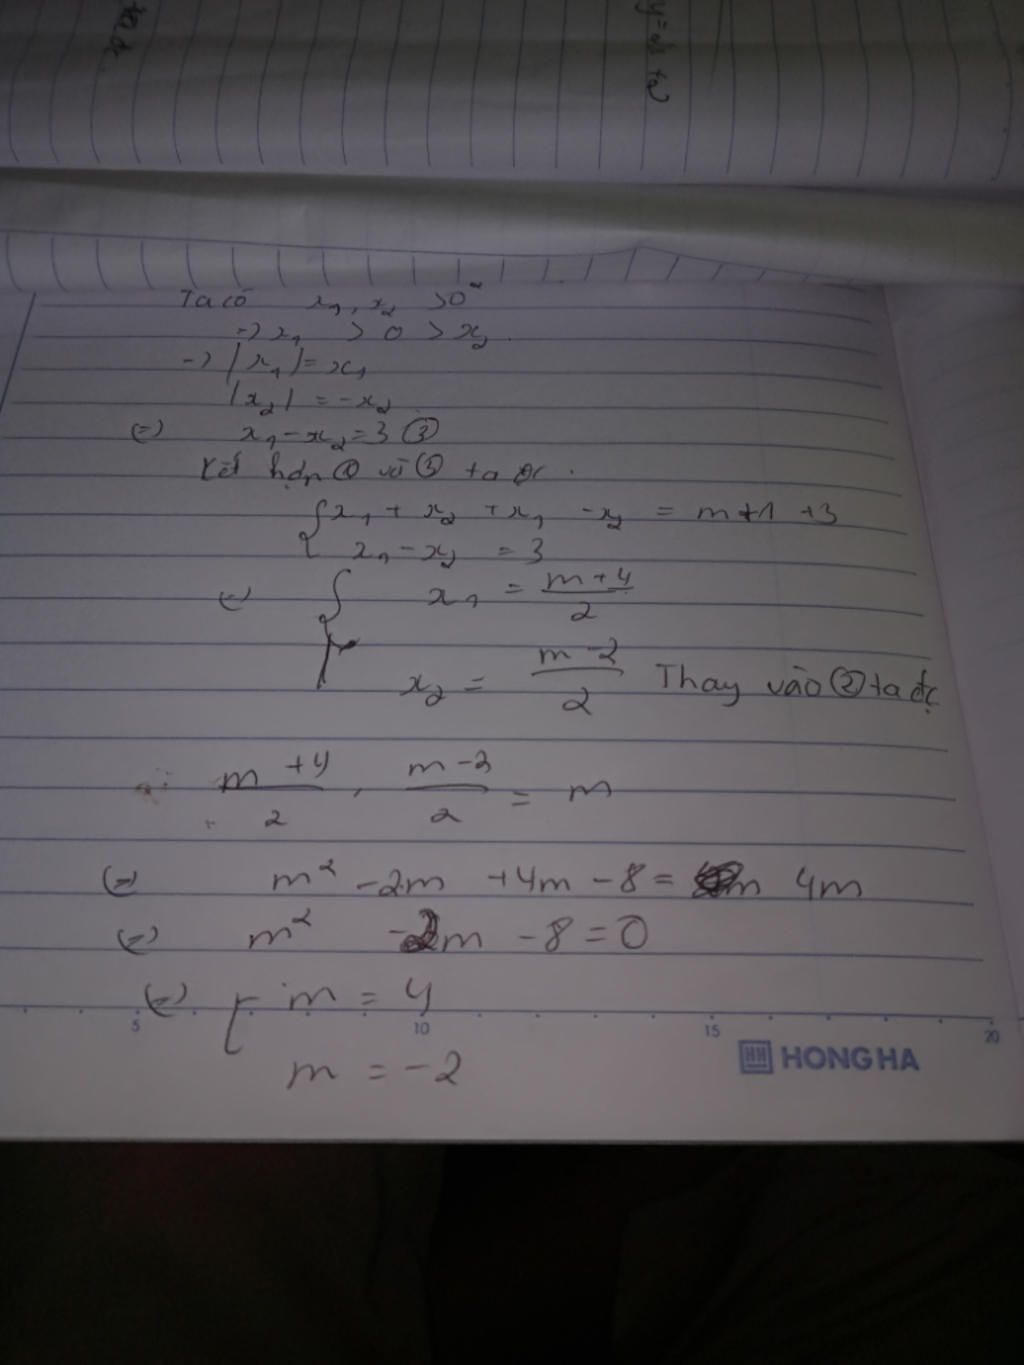 Ta có x₁, x₂ >0
=> x₁ > 0 > x₂.
-> |x₁| = x₁
|x₂| = -x₂
(=) x₁ - x₂ = 3 ③
Kết hợp ① và ③ ta đc.
{ x₁ + x₂ + x₁ - x₂ = m+1 +3
x₁ - x₂ = 3
(=) { x₁ = (m+4)/2
x₂ = (m-2)/2 Thay vào ② ta đc
(m+4)/2 . (m-2)/2 = m
(=) m² -2m +4m -8 = 4m
(=) m² -2m -8 = 0
(=) [ m = 4
5 10 15 20
HH HONG HA
m = -2